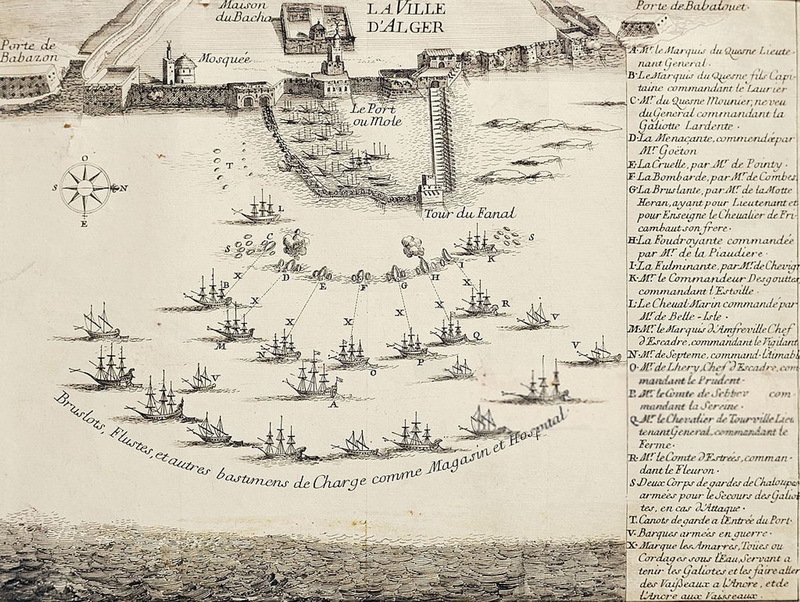 Maison
du Bacha
LA VILLE
D'ALGER
Porte de Babalouet.
Porte de
Babazon
Mosquée
Le Port
ou Mole
Tour du Fanal
O
S
N
E
T
L
S
C
K
S
D
E
F
G
H
I
B
X
X
X
X
X
X
X
R
M
N
O
P
Q
V
V
V
A
Bruslots, Flustes, et autres bastimens de Charge comme Magasin et Hospital.
A. Mr. le Marquis du Quesne Lieute-
nant General.
B. Le Marquis du Quesne fils Capi-
taine commandant le Laurier
C. Mr. du Quesne Mounier, neveu
du General commandant la
Galiotte Lardente.
D. La Menaçante, commendée par
Mr. Goëton
E. La Cruelle, par Mr. de Pointy.
F. La Bombarde, par Mr. de Combes.
G. La Bruslante, par Mr. de la Motte
Heran, ayant pour Lieutenant et
pour Enseigne le Cheualier de Fri-
cambaut son frere.
H. La Foudroyante commandée
par Mr. de la Piaudiere.
I. La Fulminante, par Mr. de Chevigny
K. Mr. le Commandeur Desgouttes
commandant l'Estoille.
L. Le Cheual Marin commandé par
Mr. de Belle-Isle.
M. Mr. le Marquis d'Amfreville Chef
d'Escadre, commandant le Vigilant
N. Mr. de Septeme, command. l'Aimable
O. Mr. de Lhery, Chef d'Escadre, com
mandant le Prudent.
P. Mr. le Comte de Sebbev com-
mandant la Sereine.
Q. Mr. le Chevalier de Tourville Lieu
tenant General, commandant le
Ferme.
R. Mr. le Comte d'Estrées, comman-
dant le Fleuron.
S. Deux Corps de gardes de Chaloupes
armées pour le Secours des Galio
tes, en cas d'Attaque.
T. Canots de garde a l'Entrée du Port.
V. Barques armées en guerre.
X. Marque les Amarres, Touës ou
Cordages sous l'Eau, Servant a
tenir les Galiotes et les faire aller
des Vaisseaux a l'Ancre, et de
l'Ancre aux Vaisseaux.